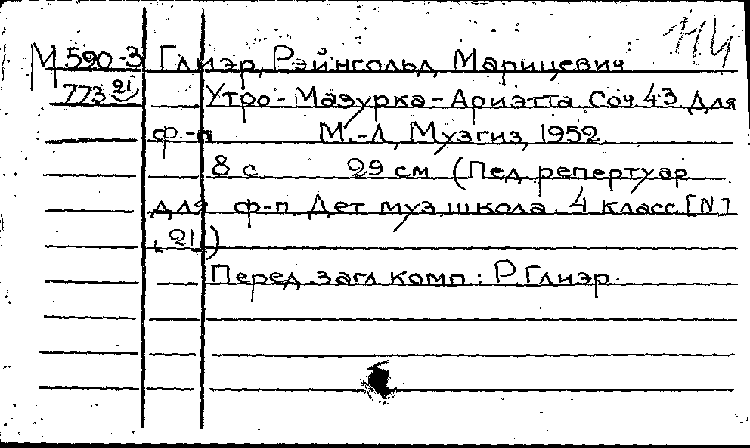 114
М 590-3 Глиэр, Рэйнгольд, Марицевич
773 21 Утро - Мазурка - Ариэтта Соч 43 Для
ф-п М.-Л, Музгиз, 1952
8 с 29 см (Пед репертуар
для ф-п Дет муз школа 4 класс [N]
21)
Перед загл комп: Р. Глиэр.